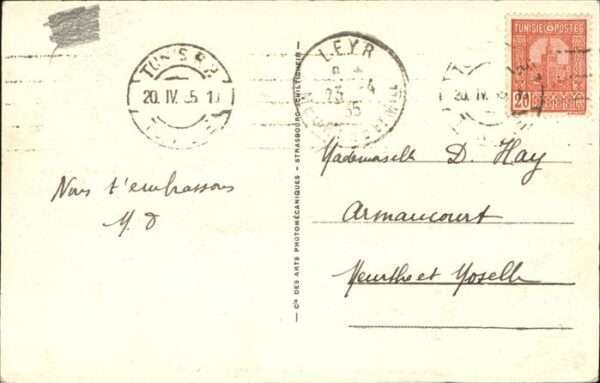 TUNIS R.P.
20. IV. 35. 1
Nous t'embrassons
M. D
Cie DES ARTS PHOTOMÉCANIQUES - STRASBOURG-SCHILTIGHEIM -
LEYR
23 -4
35
MEURTHE-ET-MLLE
TUNISIE POSTES
20
20. IV. 35
Mademoiselle D. Hay
Armaucourt
Meurthe et Moselle